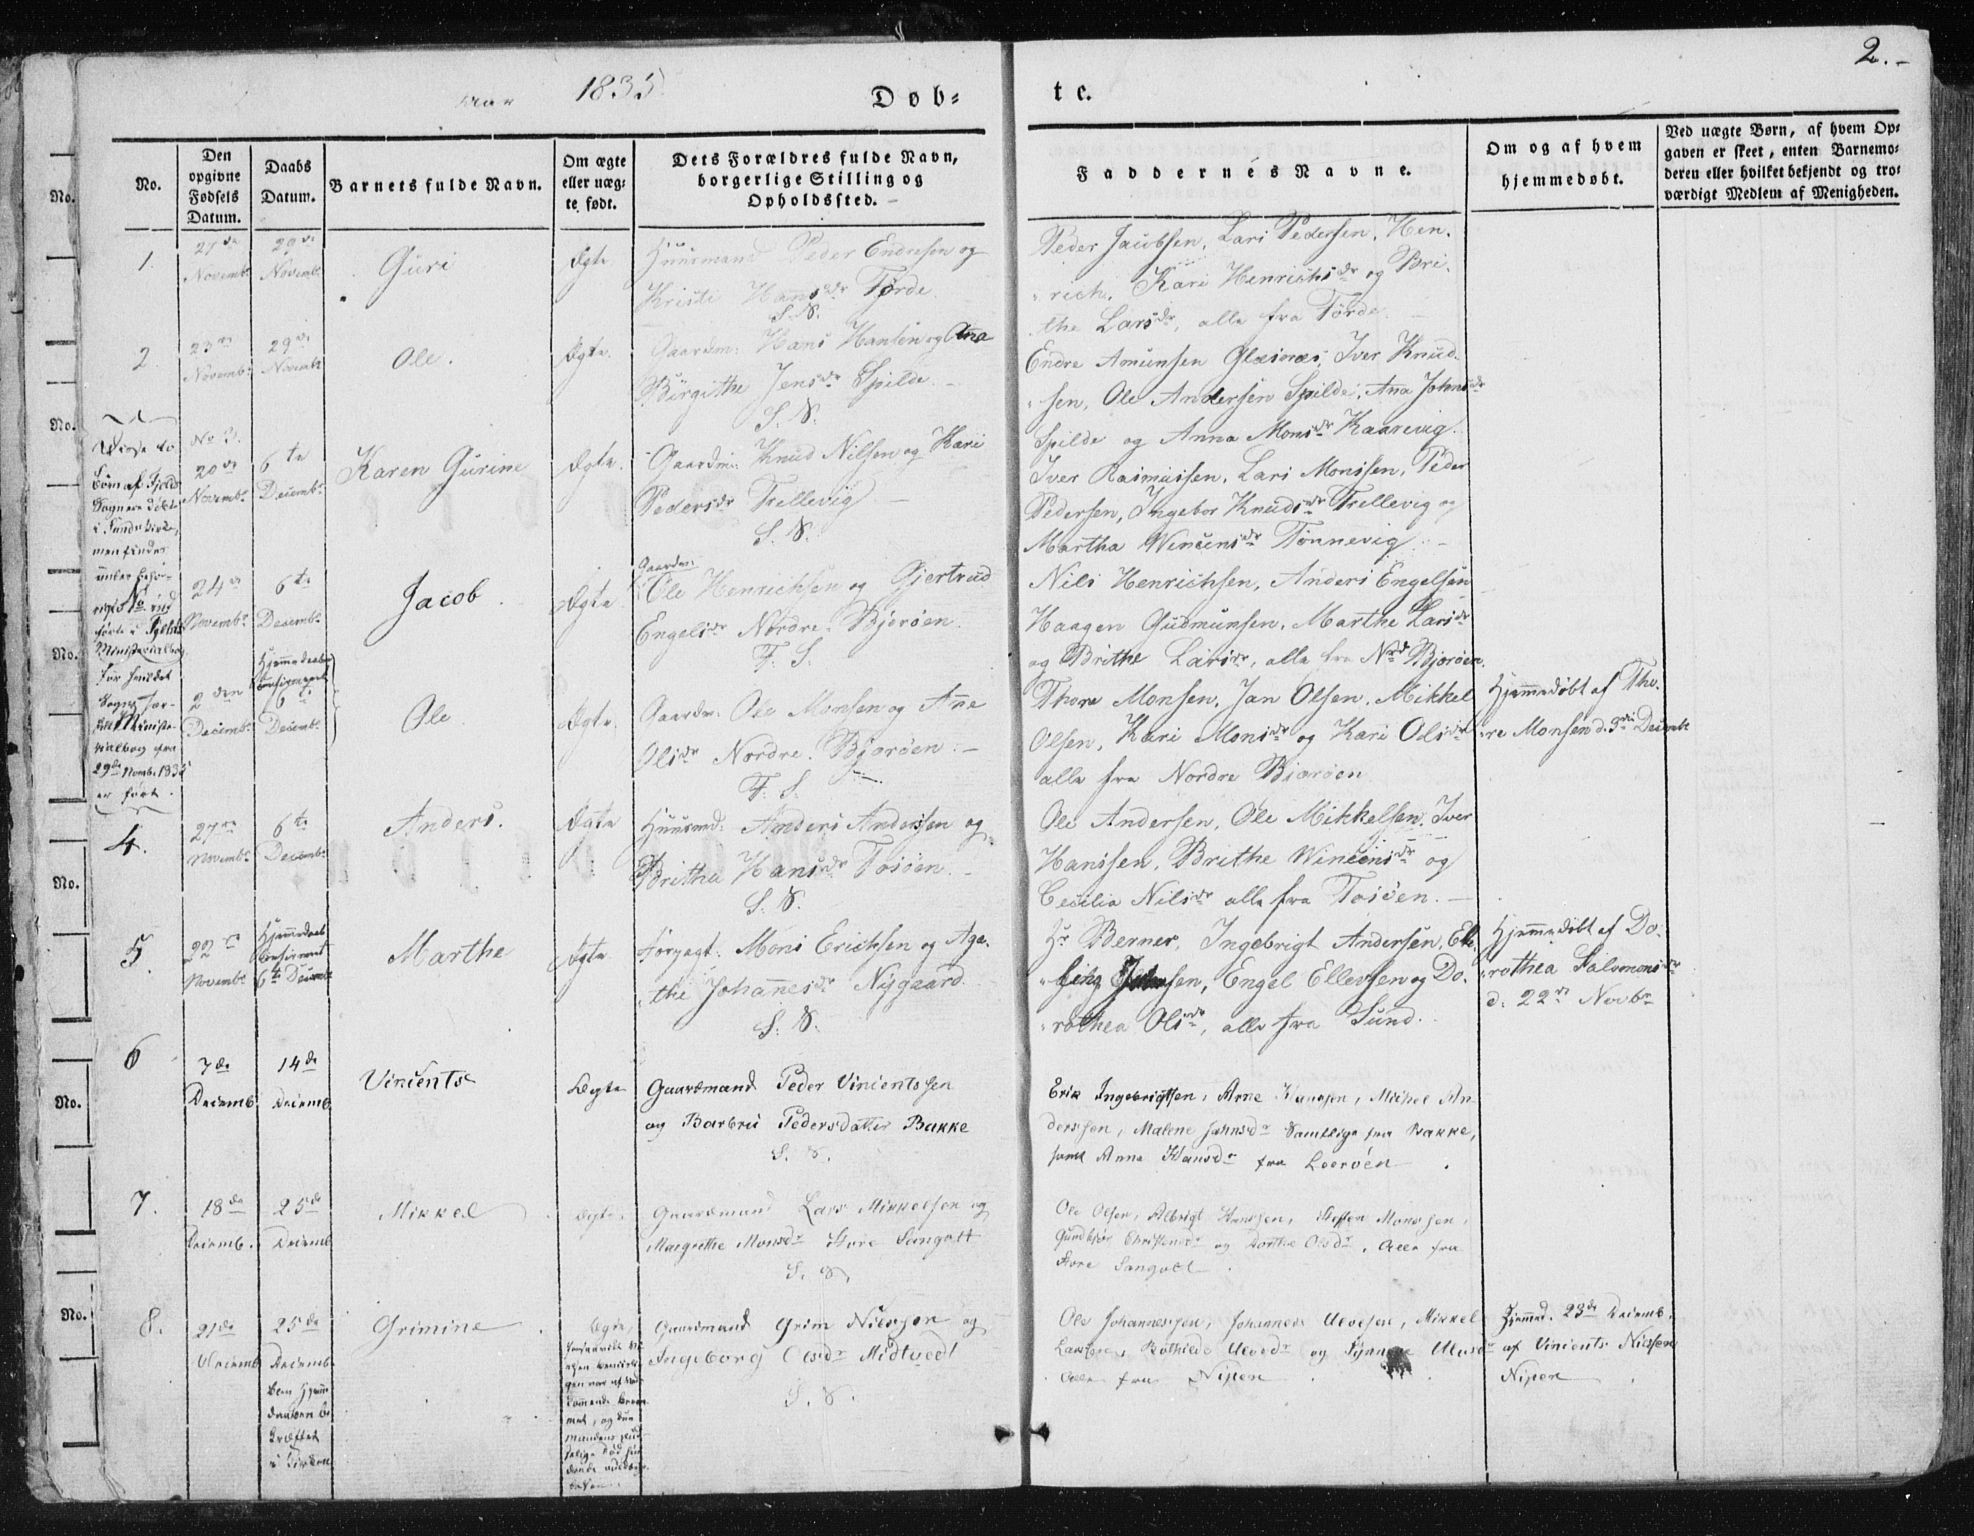 2.-
Aar 1835 Døb= te.
No.
Den
opgivne
Fødsels
Datum.
Daabs
Datum.
Barnets fulde Navn.
Om ægte
eller uæg=
te født.
Dets Forældres fulde Navn,
borgerlige Stilling og
Opholdssted.
Faddernes Navne.
Om og af hvem
hjemmedøbt.
Ved uægte Børn, af hvem Op=
gaven er skeet, enten Barnemo=
deren eller hvilket bekjendt og tro=
værdigt Medlem af Menigheden.
1.
27de
Novembr
29de
Novembr
Guri
Ægte
Huusmand Peder Endresen og
Kristi Hansdr Førde
S. S.
Peder Jacobsen, Lars Pedersen, Hen-
rich, Kari Henrichsdr og Bri-
the Larsdr, alle fra Førde.
2.
23de
Novembr
29de
Novembr
Ole.
Ægte.
Gaardm: Hans Hansen og Ane
Birgithe Jensdr Spilde.
S. S.
Endre Amunsen Glæsnæs, Iver Knud-
sen, Ole Andersen Spilde, Ana Johnsdr
Spilde og Anna Monsdr Kaarevig.
No 3.
20de
Novembr
6te
Decembr
Karen Gurine
Ægte.
Gaardm: Knud Nilsen og Kari
Pedersdr Trellevig
S. S.
Iver Rasmussen, Lars Monssen, Peder
Pedersen, Ingebor Knudsdr Trellevig og
Martha Wincensdr Tonnevig.
Disse to
Børn af Fjeld
Sogn ere døbte
i Sund Kirke,
men findes
under
No ind
førte i
Ministerialbog
for
Sogn,
Ministe-
rialbog fra
29de Novmb. 1835
er ført.
24de
Novembr
6te
Decembr
Jacob
Ægte
Gaardm:
Ole Henrichsen og Gjertrud
Engelsdr Nordre Bjorøen.
F. S.
Nils Henrichsen, Anders Engelsen
Haagen Gudmunsen, Marthe Larsdr
og Brithe Larsdr, alle fra Nord Bjorøen.
2den
Decembr
Hjemmedaaben
confirmeret
6te
Decembr
Ole
Ægte.
Gaardm: Ole Monsen og Ane
Olsdr Nordre Bjorøen.
F. S.
Thore Monsen, Jan Olsen, Mikkel
Olsen, Kari Monsdr og Kari Olsdr
alle fra Nordre Bjorøen
Hjemmedøbt af Tho-
re Monsen d. 3die Decembr
4.
27de
Novembr
6te
Decembr
Anders.
Ægte
Huusmd: Anders Anderssen og
Brithe Hansdr Tosøen.
S. S.
Ole Andersen, Ole Mikkelsen, Iver
Hanssen, Brithe Wincensdr og
Cecilia Nilsdr alle fra Tosøen.
5.
22de
Novembr
Hjemmedaab
confirmeret
6te Decembr
Marthe
Ægte
Forpagt: Mons Erichsen og Aga-
the Johannesdr Nygaard
S. S.
Hr Berner, Ingebrigt Andersen, Elle-
Engel Ellevsen og Do-
rothea Olsdr, alle fra Sund.
Hjemmedøbt af Do-
rothea Salomonsdr
d. 22de Novbr
6
7de
Decemb.
14de
Decemb.
Vincents
Ægte
Gaardmand Peder Vincentssen
og Barbru Pedersdatter Bakke
S. S.
Erik Ingebrigtsen, Arne Hanssen, Michel An
derssen, Malene Johnsdr Samtlige fra Bakke,
samt Anna Hansdr fra Leerøen.
7.
18de
Decemb.
25de
Decemb.
Mikkel
Ægte.
Gaardmand Lars Mikkelsen og
Margrethe Monsdr Store Sangolt
S. S.
Ole Olsen, Albrigt Hanssen, Steffen Monssen,
Gundbjør Christensdr og Dorthe Olsdr. Alle fra
Store Sangolt.
8.
21de
Decemb.
25de
Decemb.
Den Hjem
daaben be
kræftet
i Kirken
Grimine
Ægte,
Gaardmand Grim Nilssen og
Ingeborg Olsdr Midtvedt
S. S.
Ole Johannessen, Johannes Ulvesen, Mikkel
Larssen, Bothilde Ulvedr og Synneve Ulvesdr
Alle fra Nipen
Hjemmed. 23de Decemb.
af Vincents Nilssen
Nipen